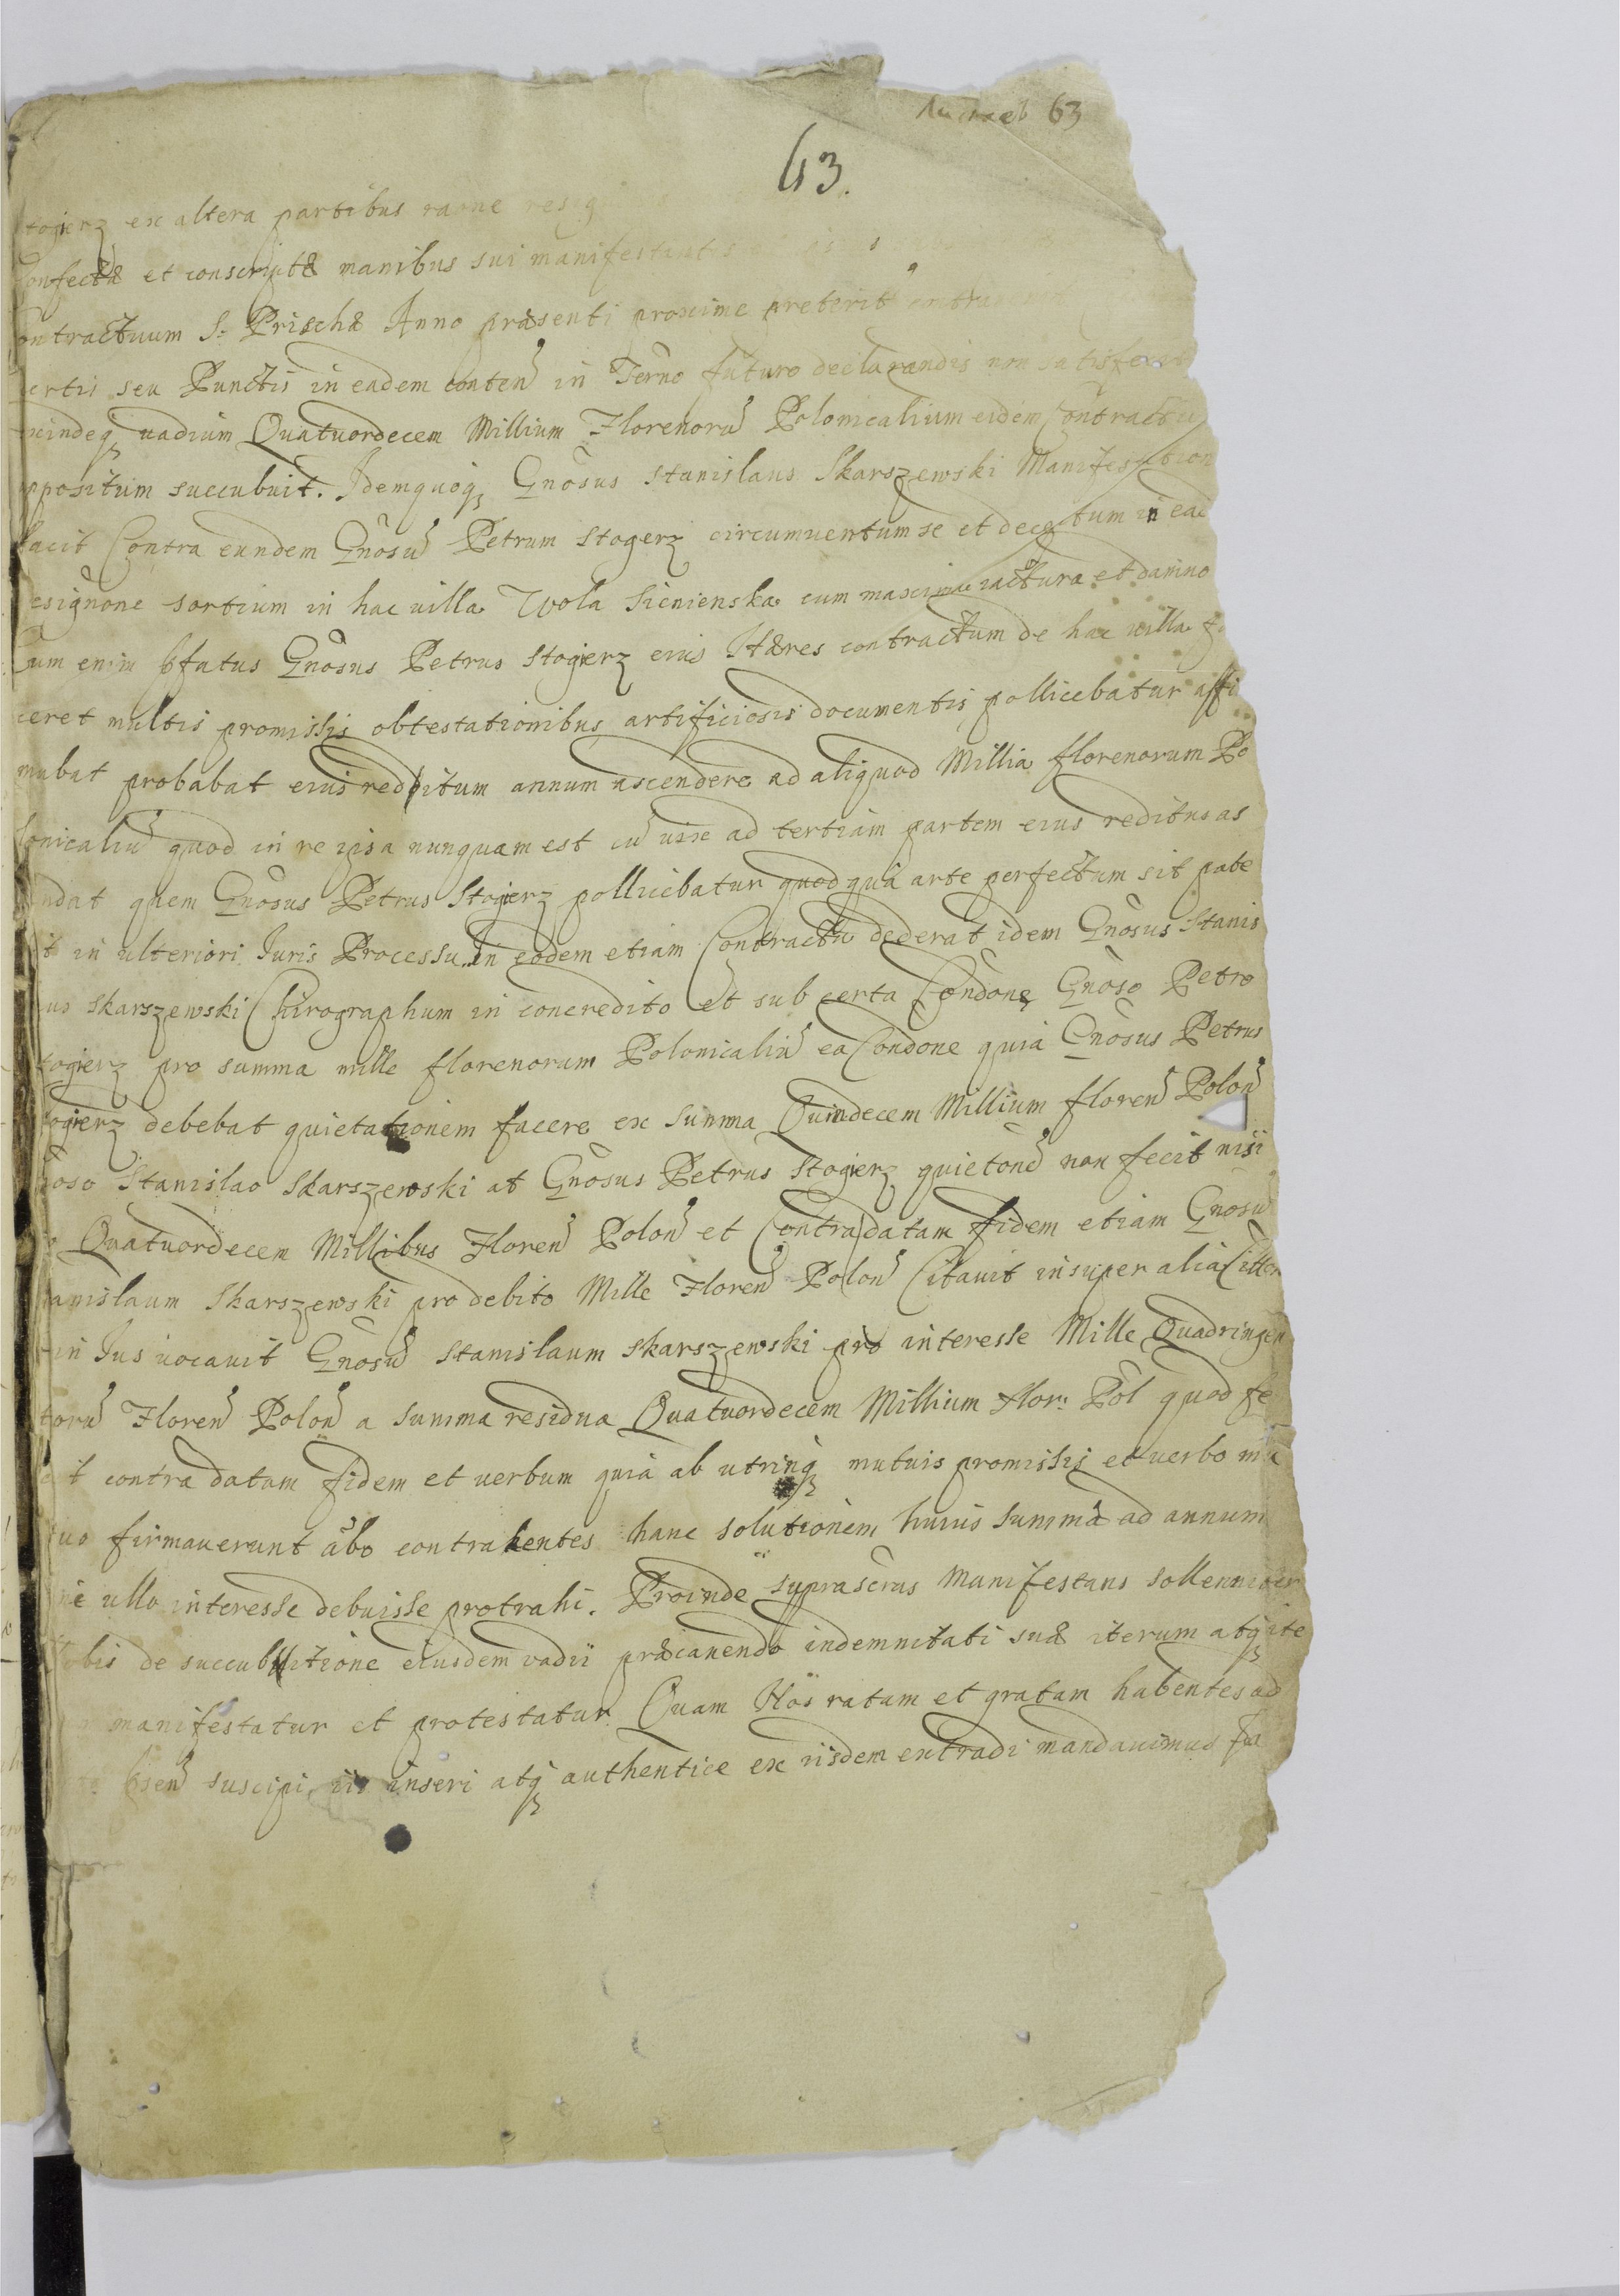 63
63.
togierz ex altera partibus raone
Confectæ et conscriptæ manibus sui manifestantis
ontractuum S. Prischæ Anno præsenti proxime preterit
certis seu Punctis in eadem conten in Terno futuro declarandis non satisfecit
exindeq vadium Quatuordecem Millium Florenorū Polonicalium eidem Contractui
appositum succubuit. Idemquoq Gnosus Stanislaus Skarszewski Manifestation
facit Contra eundem Gnosū Petrum Stogerz circumventum se et deceptum in ead
esignone sortium in hac villa Wola Sicnienska cum maxima iactura et damno
Cum enim pfatus Gnosus Petrus Stogierz eius Hæres contractum de hac villa
ceret multis promissis obtestationibus artificiosis documentis pollicebatur affi
mabat probabat eius redditum annum ascendere ad aliquod Millia florenorum Po
lonicaliū quod in re ipsa nunquam est cū vix ad tertiam partem eius reditus as
ndat quem Gnosus Petrus Stogierz pollicebatur quod qua arte perfectum sit pate
it in ulteriori Iuris Processu. In eodem etiam Contractu dederat idem Gnosus Stanis
us Skarszewski Chirographum in concredito et sub certa Condone Gnoso Petro
togierz pro summa mille florenorum Polonicaliū ea Condone quia Gnosus Petrus
togierz debebat quietationem facere ex summa Quindecem Millium floren Polon
noso Stanislao Skarszewski at Gnosus Petrus Stogierz quietone non fecit nisi
Quatuordecem Millibus Floren Polon et Contra datam fidem etiam Gnosū
tanislaum Skarszewski pro debito Mille Floren Polon Citavit insuper alia Citton
in Ius vocavit Gnosū Stanislaum Skarszewski pro interesse Mille Quadringen
torū Floren Polon a summa residua Quatuordecem Millium flor: Pol quod fe
cit contra datam fidem et verbum quia ab utrinq mutuis promissis et verbo mu
tuo firmaverunt abo contrahentes hanc solutionem huius summæ ad annum
ne ullo interesse debuisse protrahi. Proinde suprascrus Manifestans sollenniter
Nobis de succubitione eiusdem vadii præcavendo indemnitati suæ iterum atq ite
manifestatur et protestatur Quam Nos ratam et gratam habentes ad
psen suscipi iis inseri atq authentice ex iisdem extradi mandavimus